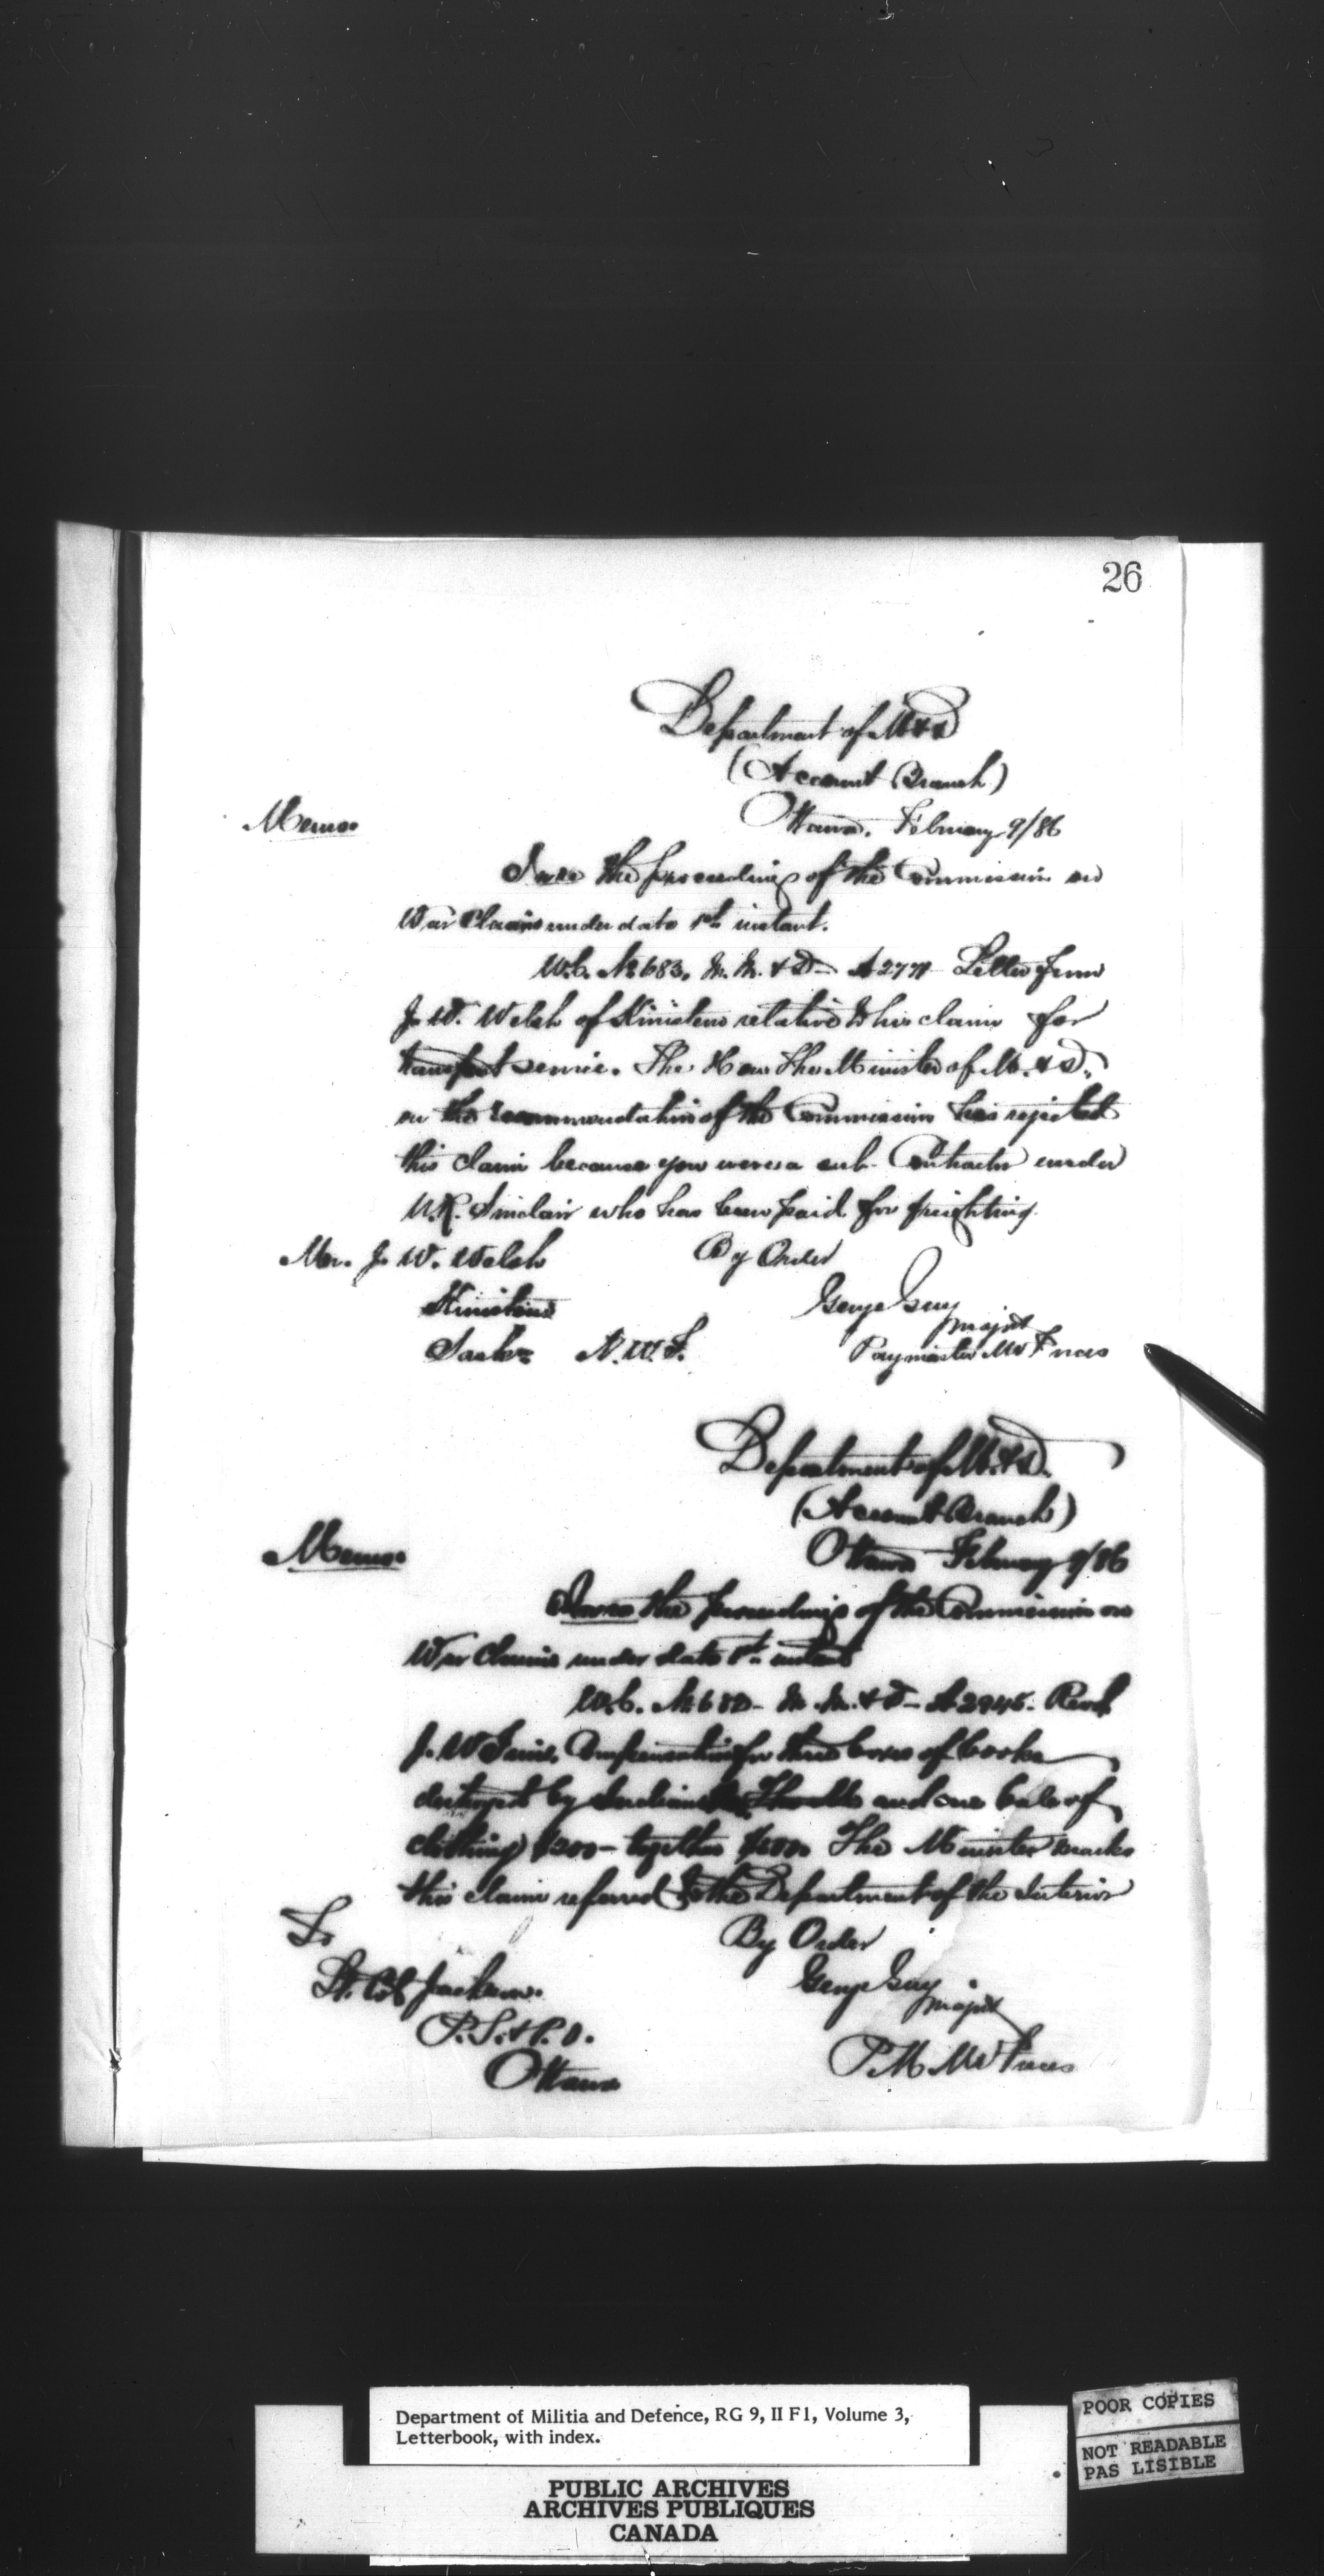 26
Department of M & D
(Account Branch)
Memo
Ottawa. February 9/86
the proceedings of the Commission on
War Claims under date instant.
W.C. No 683. M. M. & D – A 2771 Letter from
J. W. Welsh of relative to his claim for
transport service. The Hon The Minister of M. & D.,
on the recommendation of the Commission has rejected
this claim because you were a sub-Contractor under
Sinclair who has been paid for freighting.
Mr. J. W. Welsh
By Order
George Guy
Major
N.W.T.
Paymaster
Department of M. & D.
(Account Branch)
Memo
Ottawa February 9/86
the proceedings of the Commission on
War Claims under date instant
W.C. No M. M. & D – A 2945. Revd
J. W. Compensation for three boxes of books
destroyed by Indians and one bale of
clothing $200 – together The Minister marks
this claim referred to the Department of the Interior
To
By Order
Lt. Col Jackson.
George Guy
Major
P.S. & P.O.
P M
Ottawa
Department of Militia and Defence, RG 9, II F1, Volume 3,
Letterbook, with index.
POOR COPIES
NOT READABLE
PAS LISIBLE
PUBLIC ARCHIVES
ARCHIVES PUBLIQUES
CANADA